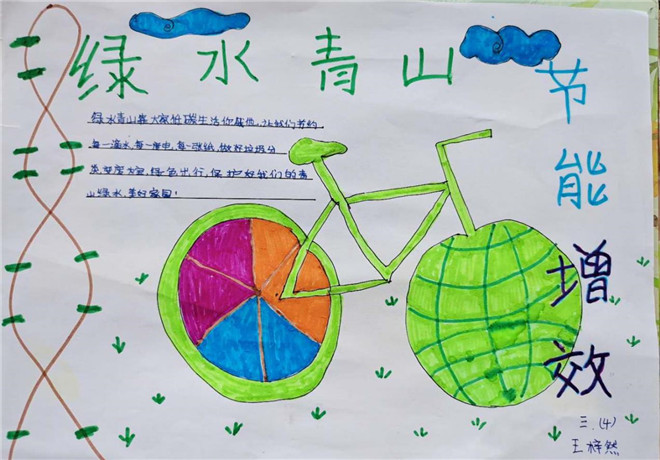 绿水青山
节能增效
绿水青山靠大家低碳生活你我他,让我们节约
每一滴水,每一度电,每一张纸,做好垃圾分
类 绿色出行,保护好我们的青
山绿水,美好家园!
三.(4)
王梓然